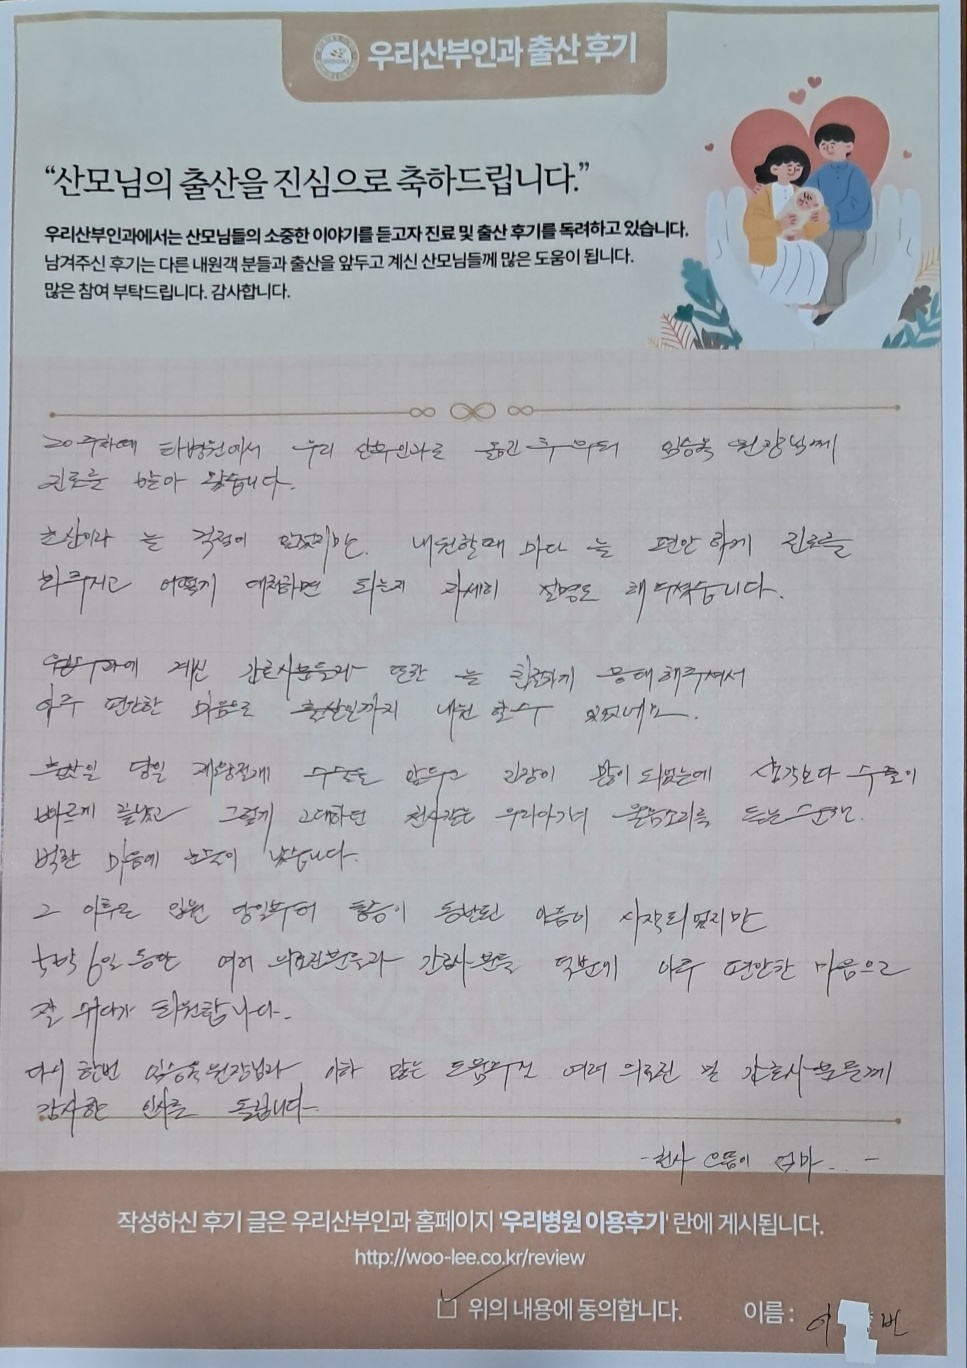 우리산부인과 출산 후기
“산모님의 출산을 진심으로 축하드립니다.”
우리산부인과에서는 산모님들의 소중한 이야기를 듣고자 진료 및 출산 후기를 독려하고 있습니다.
남겨주신 후기는 다른 내원객 분들과 출산을 앞두고 계신 산모님들께 많은 도움이 됩니다.
많은 참여 부탁드립니다. 감사합니다.
20주차때 타병원에서 우리 산부인과로 옮긴 후부터 임승옥 원장님께
진료를 받아 왔습니다.
초산이라 늘 걱정이 앞섰지만. 내원할때 마다 늘 편안하게 진료를
봐주시고 어떻게 대처하면 되는지 자세히 설명도 해 주셨습니다.
계신 간호사분들과 또한 늘 친절하게 응대해주셔서
아주 편안한 마음으로 출산일까지 내원 할수 있었네요.
출산일 당일 제왕절개 수술을 앞두고 긴장이 많이 되었는데 생각보다 수술이
빠르게 끝났고 그렇게 고대하던 천사같은 우리아기의 울음소리를 듣는순간.
벅찬 마음에 눈물이 났습니다.
그 이후로 입원 당일부터 통증이 동반된 아픔이 시작되었지만
5박 6일 동안 여러 의료진분들과 간호사 분들 덕분에 아주 편안한 마음으로
잘 쉬다가 퇴원합니다.
다시 한번 임승옥 원장님과 이하 많은 도움주신 여러 의료진 및 간호사 분들께
감사한 인사를 드립니다.
- 천사 으뜸이 엄마... -
작성하신 후기 글은 우리산부인과 홈페이지 '우리병원 이용후기' 란에 게시됩니다.
http://woo-lee.co.kr/review
위의 내용에 동의합니다. 이름 : 이 빈